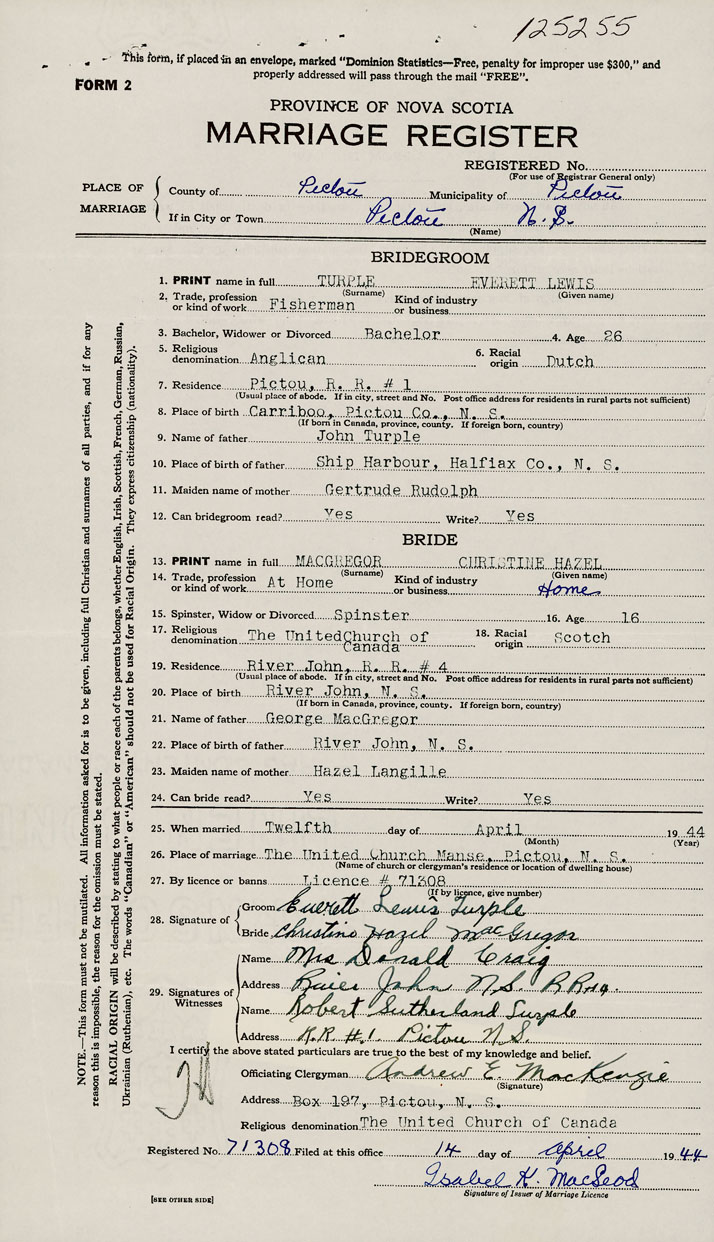 125255
This form, if placed in an envelope, marked "Dominion Statistics—Free, penalty for improper use $300," and
properly addressed will pass through the mail "FREE".
FORM 2
PROVINCE OF NOVA SCOTIA
MARRIAGE REGISTER
REGISTERED No.
(For use of Registrar General only)
PLACE OF MARRIAGE
County of Pictou Municipality of Pictou
If in City or Town Pictou N.S.
(Name)
BRIDEGROOM
1. PRINT name in full TURPLE EVERETT LEWIS
(Surname) (Given name)
2. Trade, profession or kind of work Fisherman Kind of industry or business
3. Bachelor, Widower or Divorced Bachelor 4. Age 26
5. Religious denomination Anglican 6. Racial origin Dutch
7. Residence Pictou, R. R. # 1
(Usual place of abode. If in city, street and No. Post office address for residents in rural parts not sufficient)
8. Place of birth Carriboo, Pictou Co., N. S.
(If born in Canada, province, county. If foreign born, country)
9. Name of father John Turple
10. Place of birth of father Ship Harbour, Halfiax Co., N. S.
11. Maiden name of mother Gertrude Rudolph
12. Can bridegroom read? Yes Write? Yes
BRIDE
13. PRINT name in full MACGREGOR CHRISTINE HAZEL
(Surname) (Given name)
14. Trade, profession or kind of work At Home Kind of industry or business Home
15. Spinster, Widow or Divorced Spinster 16. Age 16
17. Religious denomination The United Church of Canada 18. Racial origin Scotch
19. Residence River John, R. R. # 4
(Usual place of abode. If in city, street and No. Post office address for residents in rural parts not sufficient)
20. Place of birth River John, N. S.
(If born in Canada, province, county. If foreign born, country)
21. Name of father George MacGregor
22. Place of birth of father River John, N. S.
23. Maiden name of mother Hazel Langille
24. Can bride read? Yes Write? Yes
25. When married Twelfth day of April 1944
(Month) (Year)
26. Place of marriage The United Church Manse, Pictou, N. S.
(Name of church or clergyman's residence or location of dwelling house)
27. By licence or banns Licence # 71308
(If by licence, give number)
28. Signature of
Groom Everett Lewis Turple
Bride Christine Hazel MacGregor
29. Signatures of Witnesses
Name Mrs Donald Craig
Address River John N.S. RR#4.
Name Robert Sutherland Turple
Address R.R. #1. Pictou N.S.
I certify the above stated particulars are true to the best of my knowledge and belief.
Officiating Clergyman Andrew E. MacKenzie
(Signature)
Address Box 197, Pictou, N. S.
Religious denomination The United Church of Canada
Registered No. 71308 Filed at this office 14 day of April 1944
Isabel K. MacLeod
Signature of Issuer of Marriage Licence
[SEE OTHER SIDE]
NOTE.—This form must not be mutilated. All information asked for is to be given, including full Christian and surnames of all parties, and if for any
reason this is impossible, the reason for the omission must be stated.
RACIAL ORIGIN will be described by stating to what people or race each of the parents belongs, whether English, Irish, Scottish, French, German, Russian,
Ukrainian (Ruthenian), etc. The words "Canadian" or "American" should not be used for Racial Origin. They express citizenship (nationality).